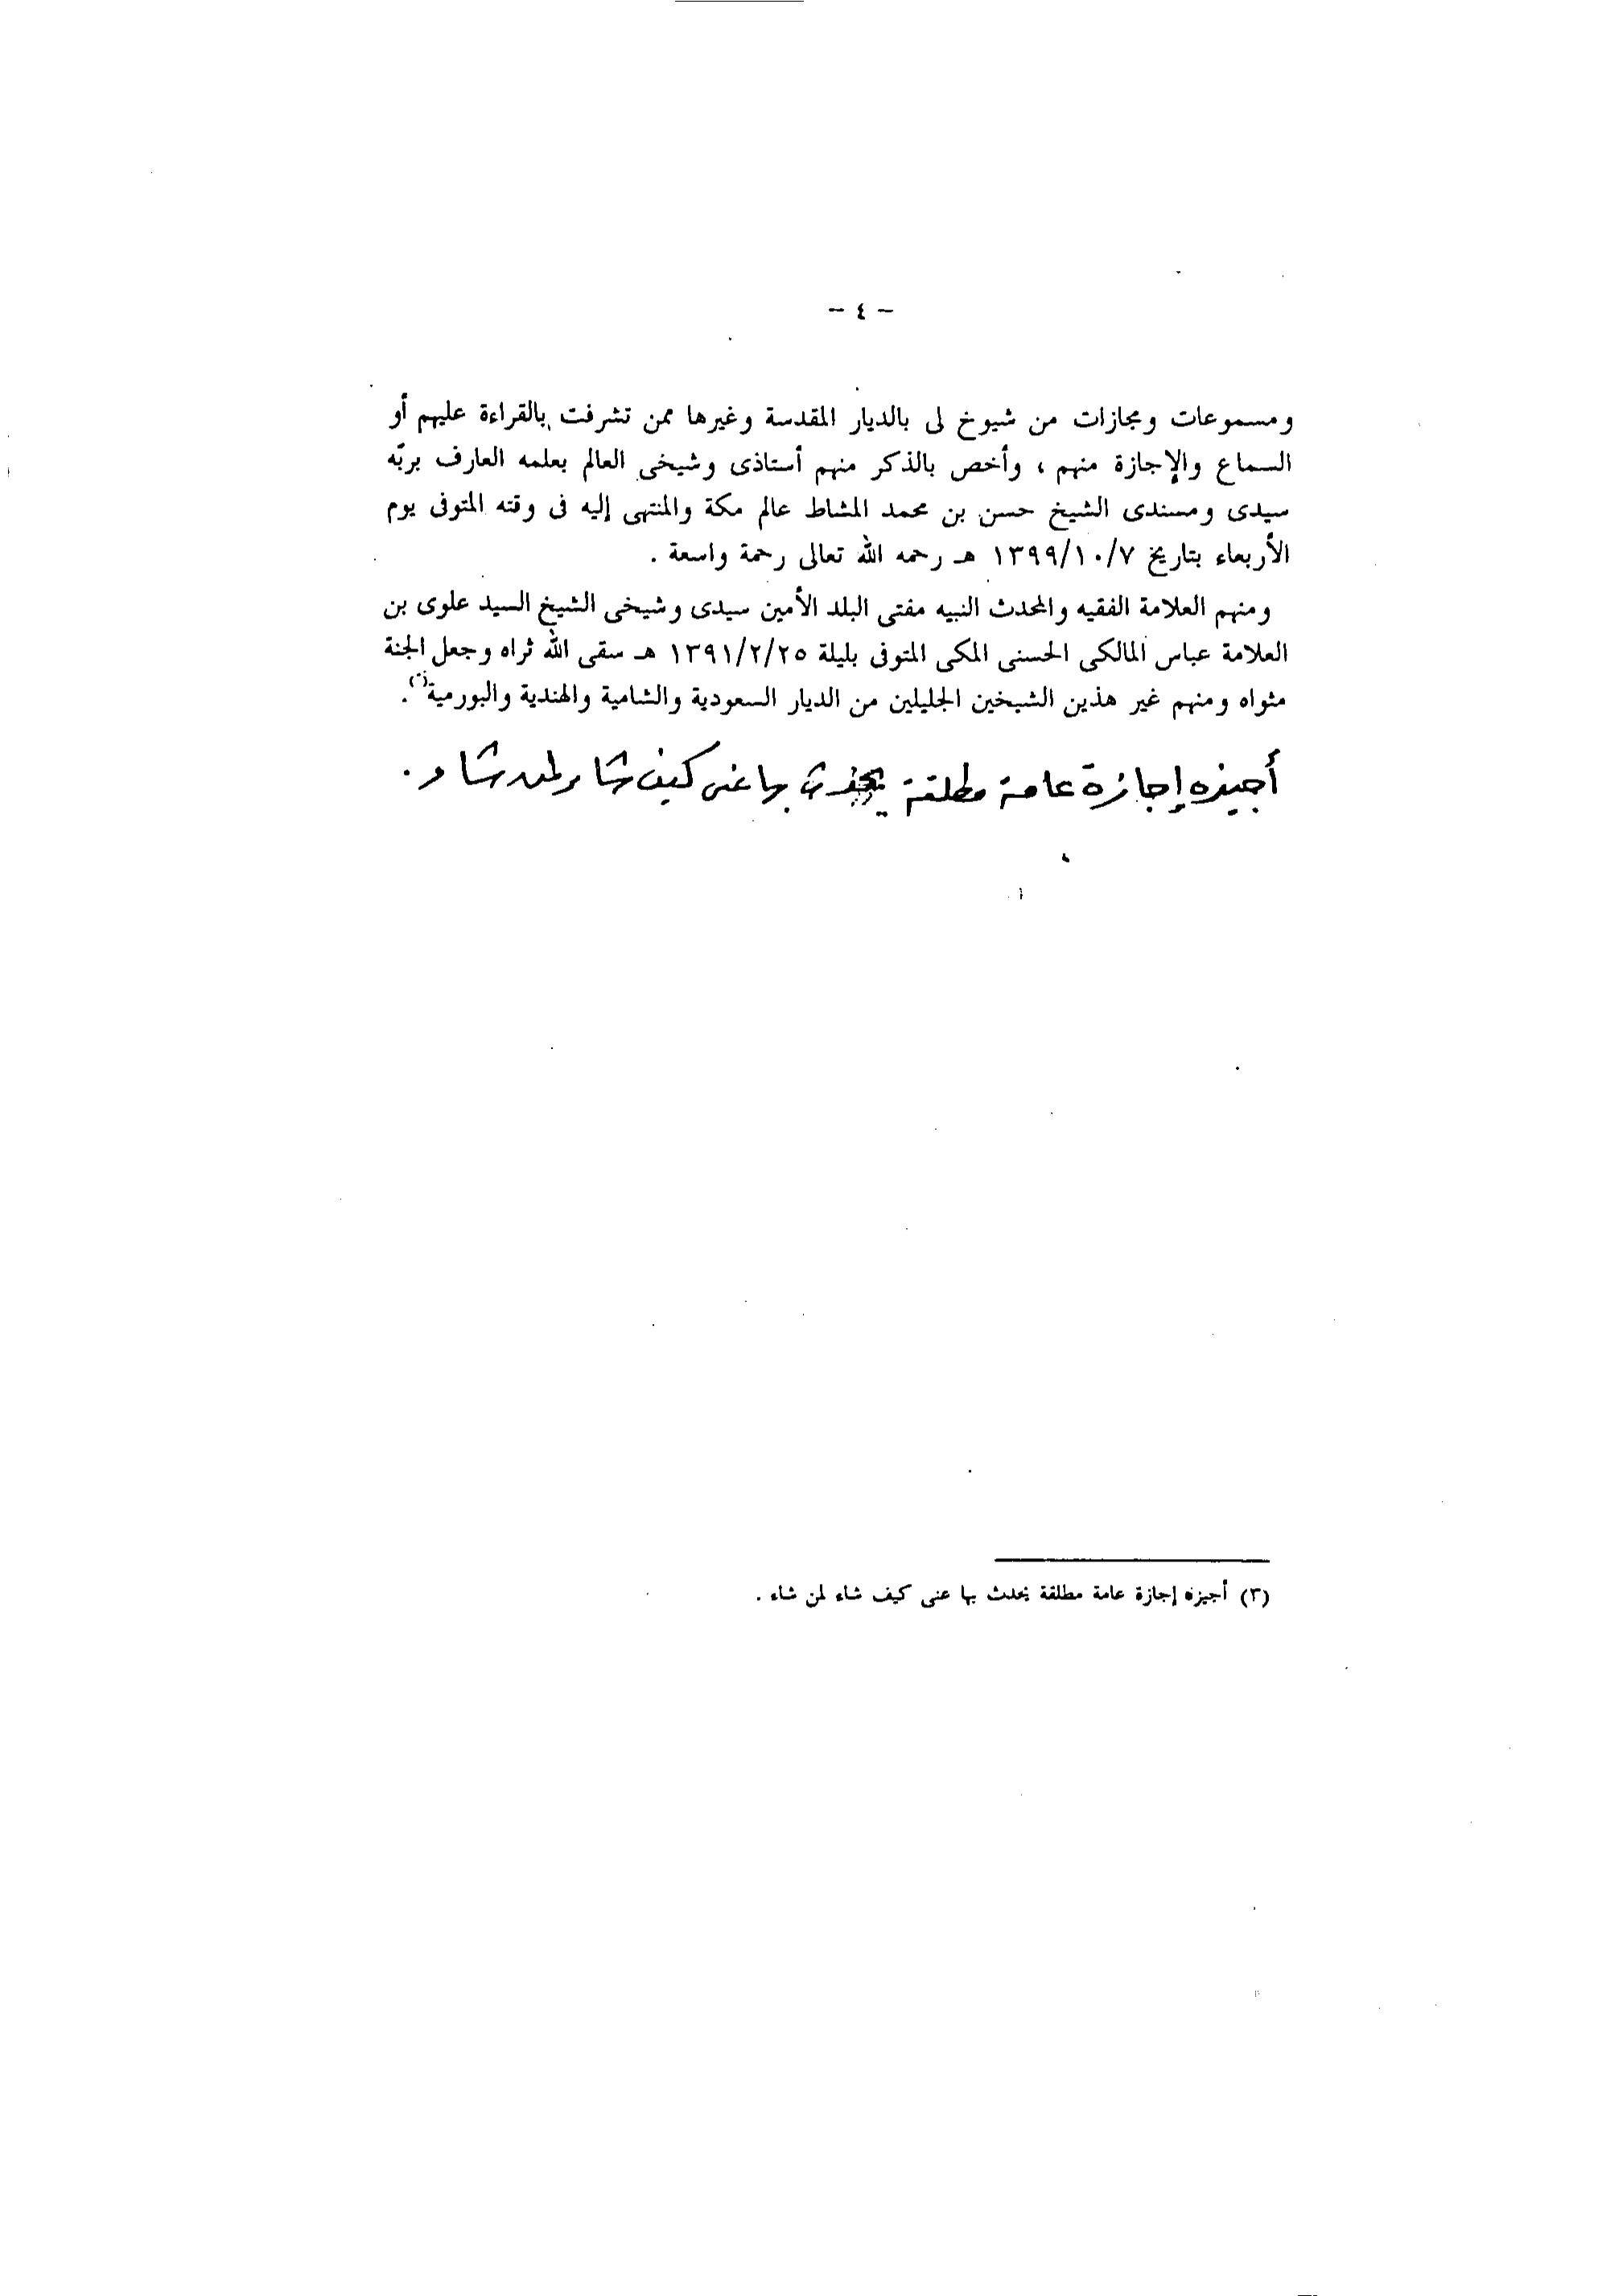 - ٤ -
ومسموعات ومجازات من شيوخ لى بالديار المقدسة وغيرها ممن تشرفت بالقراءة عليهم أو
السماع والإجازة منهم ، وأخص بالذكر منهم أستاذى وشيخى العالم بعلمه العارف بربّه
سيدى ومسندى الشيخ حسن بن محمد المشاط عالم مكة والمنتهى إليه فى وقته المتوفى يوم
الأربعاء بتاريخ ١٣٩٩/١٠/٧ هـ رحمه الله تعالى رحمة واسعة .
ومنهم العلامة الفقيه والمحدث النبيه مفتى البلد الأمين سيدى وشيخى الشيخ السيد علوى بن
العلامة عباس المالكى الحسنى المكى المتوفى بليلة ١٣٩١/٢/٢٥ هـ سقى الله ثراه وجعل الجنة
مثواه ومنهم غير هذين الشيخين الجليلين من الديار السعودية والشامية والهندية والبورمية .
أجيزه إجازة عامة مطلقة يحدث بها عنى كيف شاء ولمن شاء .
(٣) أجيزه إجازة عامة مطلقة يحدث بها عنى كيف شاء لمن شاء .